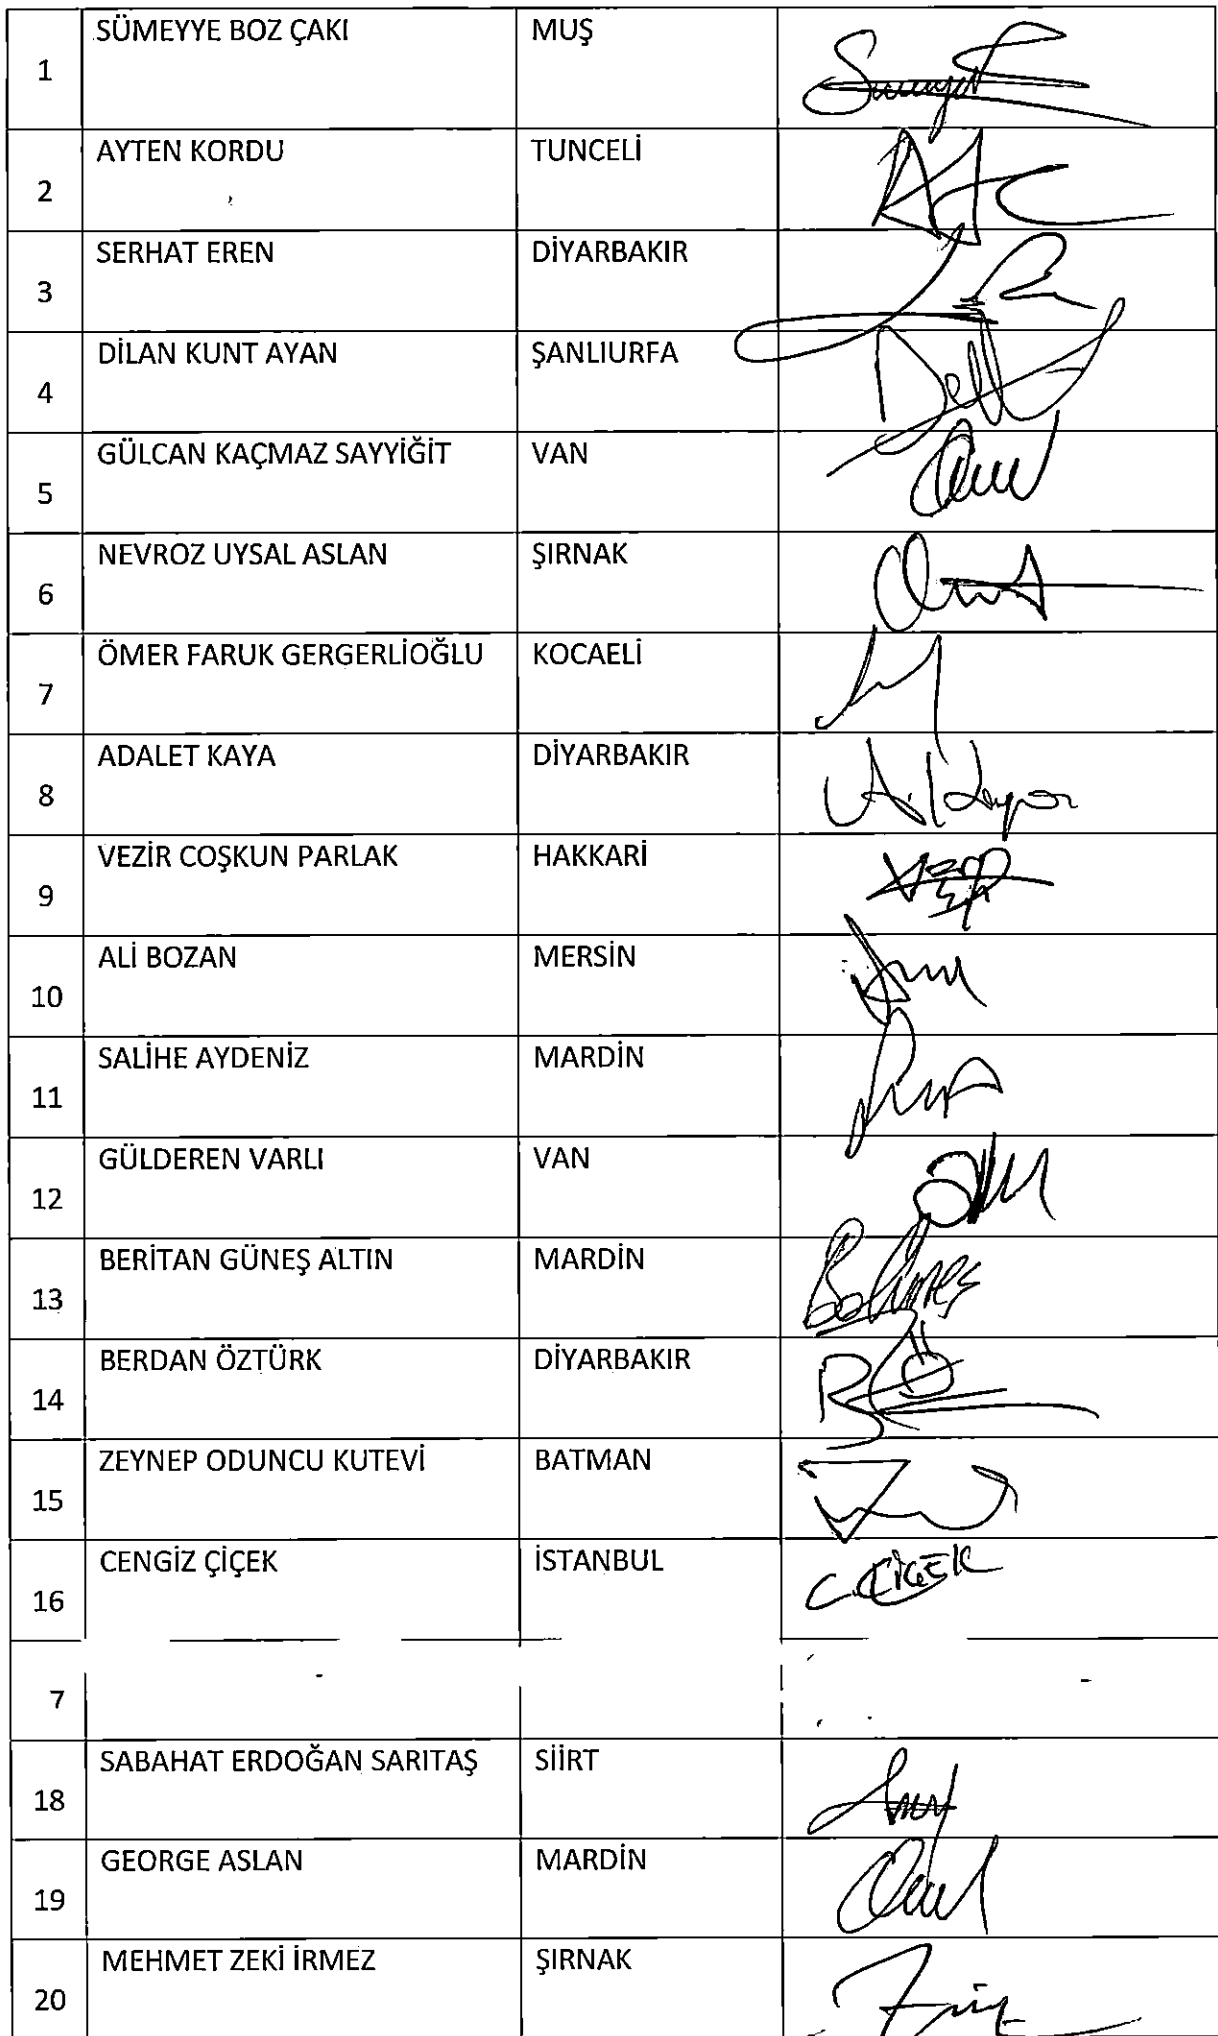 1 SÜMEYYE BOZ ÇAKI MUŞ
2 AYTEN KORDU TUNCELİ
3 SERHAT EREN DİYARBAKIR
4 DİLAN KUNT AYAN ŞANLIURFA
5 GÜLCAN KAÇMAZ SAYYİĞİT VAN
6 NEVROZ UYSAL ASLAN ŞIRNAK
7 ÖMER FARUK GERGERLİOĞLU KOCAELİ
8 ADALET KAYA DİYARBAKIR
9 VEZİR COŞKUN PARLAK HAKKARİ
10 ALİ BOZAN MERSİN
11 SALİHE AYDENİZ MARDİN
12 GÜLDEREN VARLI VAN
13 BERİTAN GÜNEŞ ALTIN MARDİN
14 BERDAN ÖZTÜRK DİYARBAKIR
15 ZEYNEP ODUNCU KUTEVİ BATMAN
16 CENGİZ ÇİÇEK İSTANBUL C. ÇİÇEK
7
18 SABAHAT ERDOĞAN SARITAŞ SİİRT
19 GEORGE ASLAN MARDİN
20 MEHMET ZEKİ İRMEZ ŞIRNAK